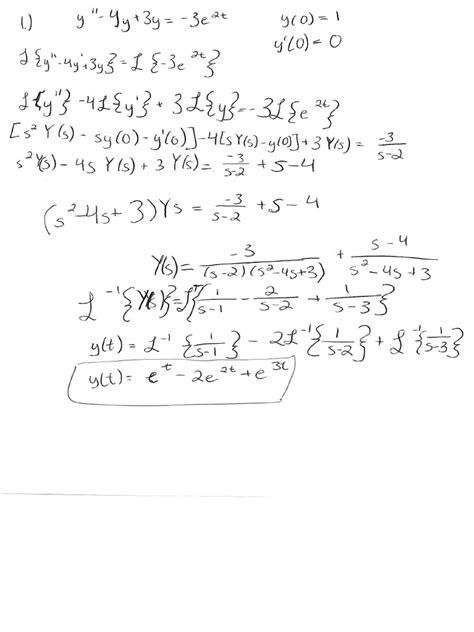 1.) y'' - 4y + 3y = -3e^{2t} y(0) = 1
y'(0) = 0
ℒ{y'' - 4y' + 3y} = ℒ{-3e^{2t}}
ℒ{y''} - 4ℒ{y'} + 3ℒ{y} = -3ℒ{e^{2t}}
[s² Y(s) - sy(0) - y'(0)] - 4[sY(s) - y(0)] + 3Y(s) = -3/(s-2)
s² Y(s) - 4s Y(s) + 3 Y(s) = -3/(s-2) + s - 4
(s² - 4s + 3) Ys = -3/(s-2) + s - 4
Y(s) = -3/((s-2)(s² - 4s + 3)) + (s-4)/(s² - 4s + 3)
ℒ⁻¹{Y(s)} = ℒ⁻¹{1/(s-1) - 2/(s-2) + 1/(s-3)}
y(t) = ℒ⁻¹{1/(s-1)} - 2ℒ⁻¹{1/(s-2)} + ℒ⁻¹{1/(s-3)}
y(t) = e^t - 2e^{2t} + e^{3t}